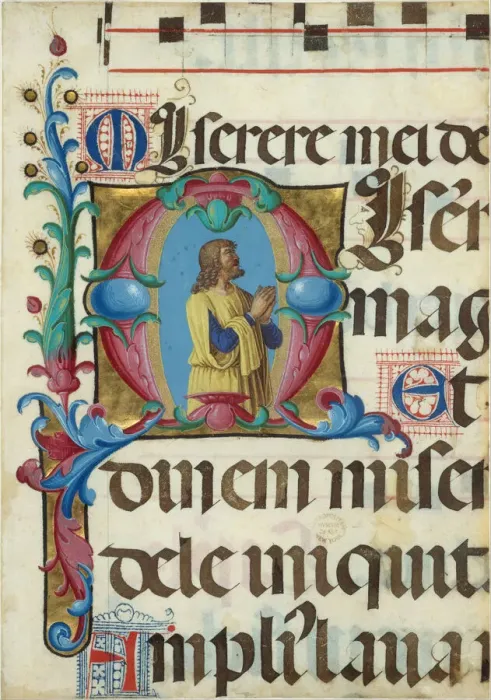 MIserere mei de
MIser
mag
Et
dinem miser
dele iniquit
Ampli' laua